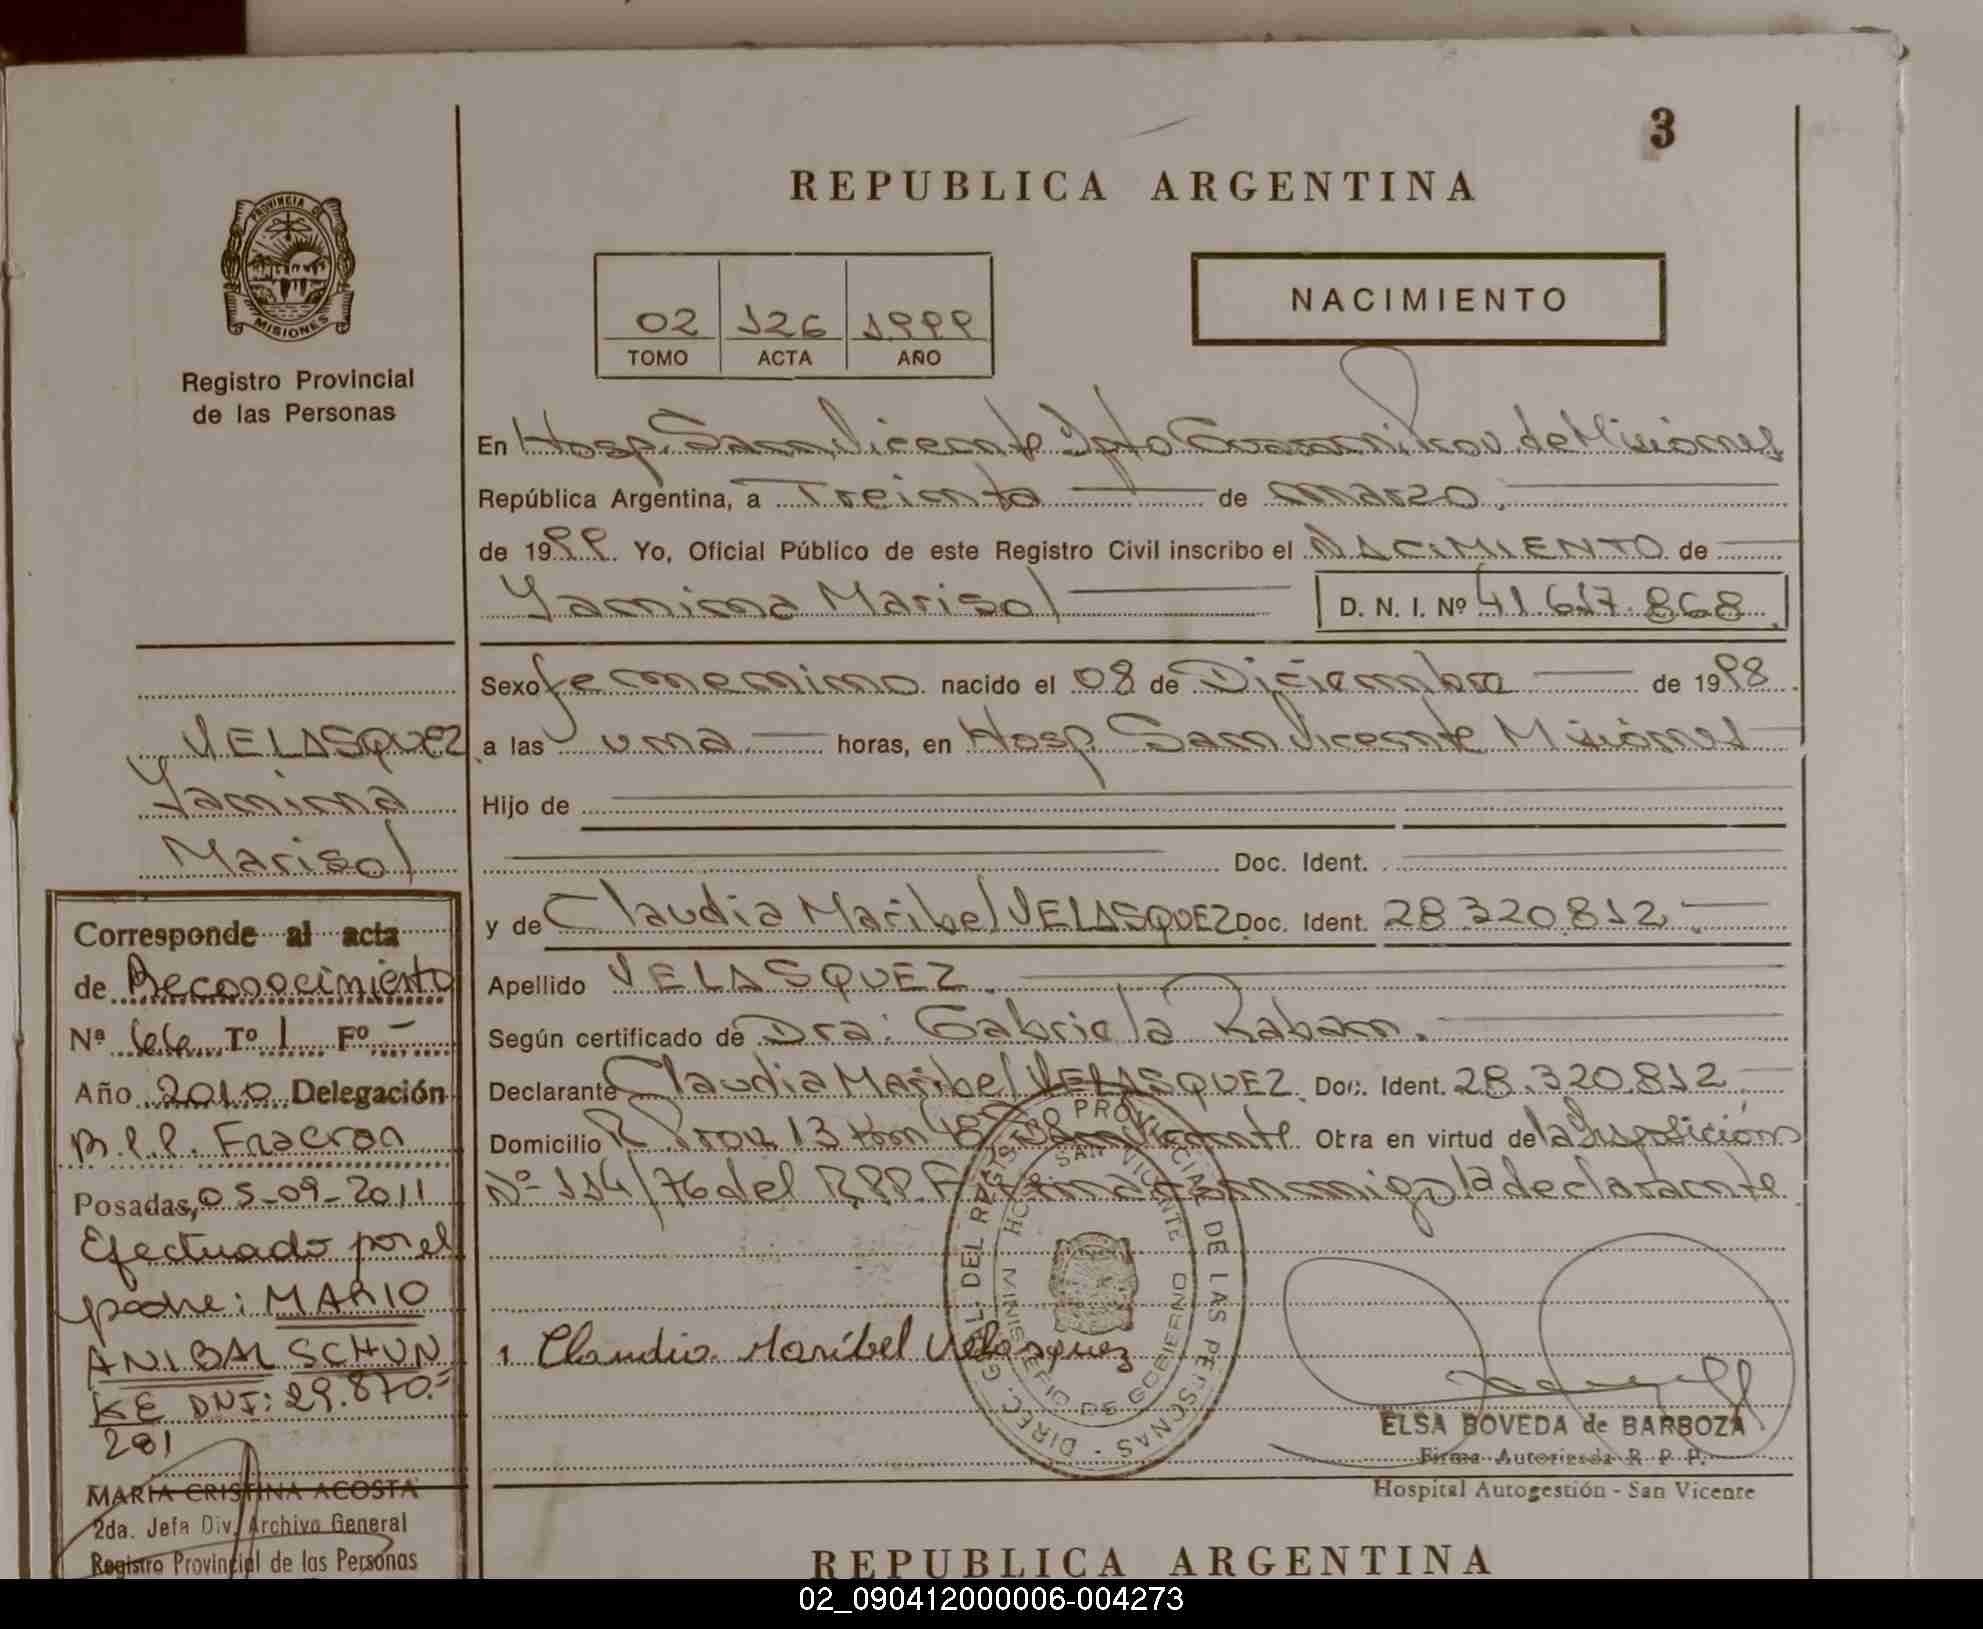 3
REPUBLICA ARGENTINA
PROVINCIA DE
MISIONES
Registro Provincial
de las Personas
02 126 1999
TOMO ACTA AÑO
NACIMIENTO
En Hosp. San Vicente Dpto Guaraní Prov. de Misiones
República Argentina, a Treinta de marzo
de 1999 Yo, Oficial Público de este Registro Civil inscribo el NACIMIENTO de
Yamima Marisol D. N. I. Nº 41.617.868
Sexo femenino nacido el 08 de Diciembre de 1998
a las una horas, en Hosp. San Vicente Misiones
Hijo de
Doc. Ident.
y de Claudia Maribel VELASQUEZ Doc. Ident. 28.320.812
Apellido VELASQUEZ
Según certificado de Dra: Gabriela Raban.
Declarante Claudia Maribel VELASQUEZ Doc. Ident. 28.320.812
Domicilio R. Prov. 13 Km 48 San Vicente. Otra en virtud de la Disposición
Nº 114/76 del R.P.P. Firma conmigo la declarante
1 Claudia Maribel Velasquez
DIREC. GRAL. DEL REGISTRO PROVINCIAL DE LAS PERSONAS
SAN VICENTE
MINISTERIO DE GOBIERNO
ELSA BOVEDA de BARBOZA
Firma Autorizada R. P. P.
Hospital Autogestión - San Vicente
VELASQUEZ
Yamima
Marisol
Corresponde al acta
de Reconocimiento
Nº 66 Tº 1 Fº -
Año 2010 Delegación
R.P.P. Fracran
Posadas, 05-09-2011
Efectuado por el
padre: MARIO
ANIBAL SCHUN
KE DNI: 29.870.-
281
MARIA CRISTINA ACOSTA
2da. Jefa Div. Archivo General
Registro Provincial de las Personas
REPUBLICA ARGENTINA
02_090412000006-004273